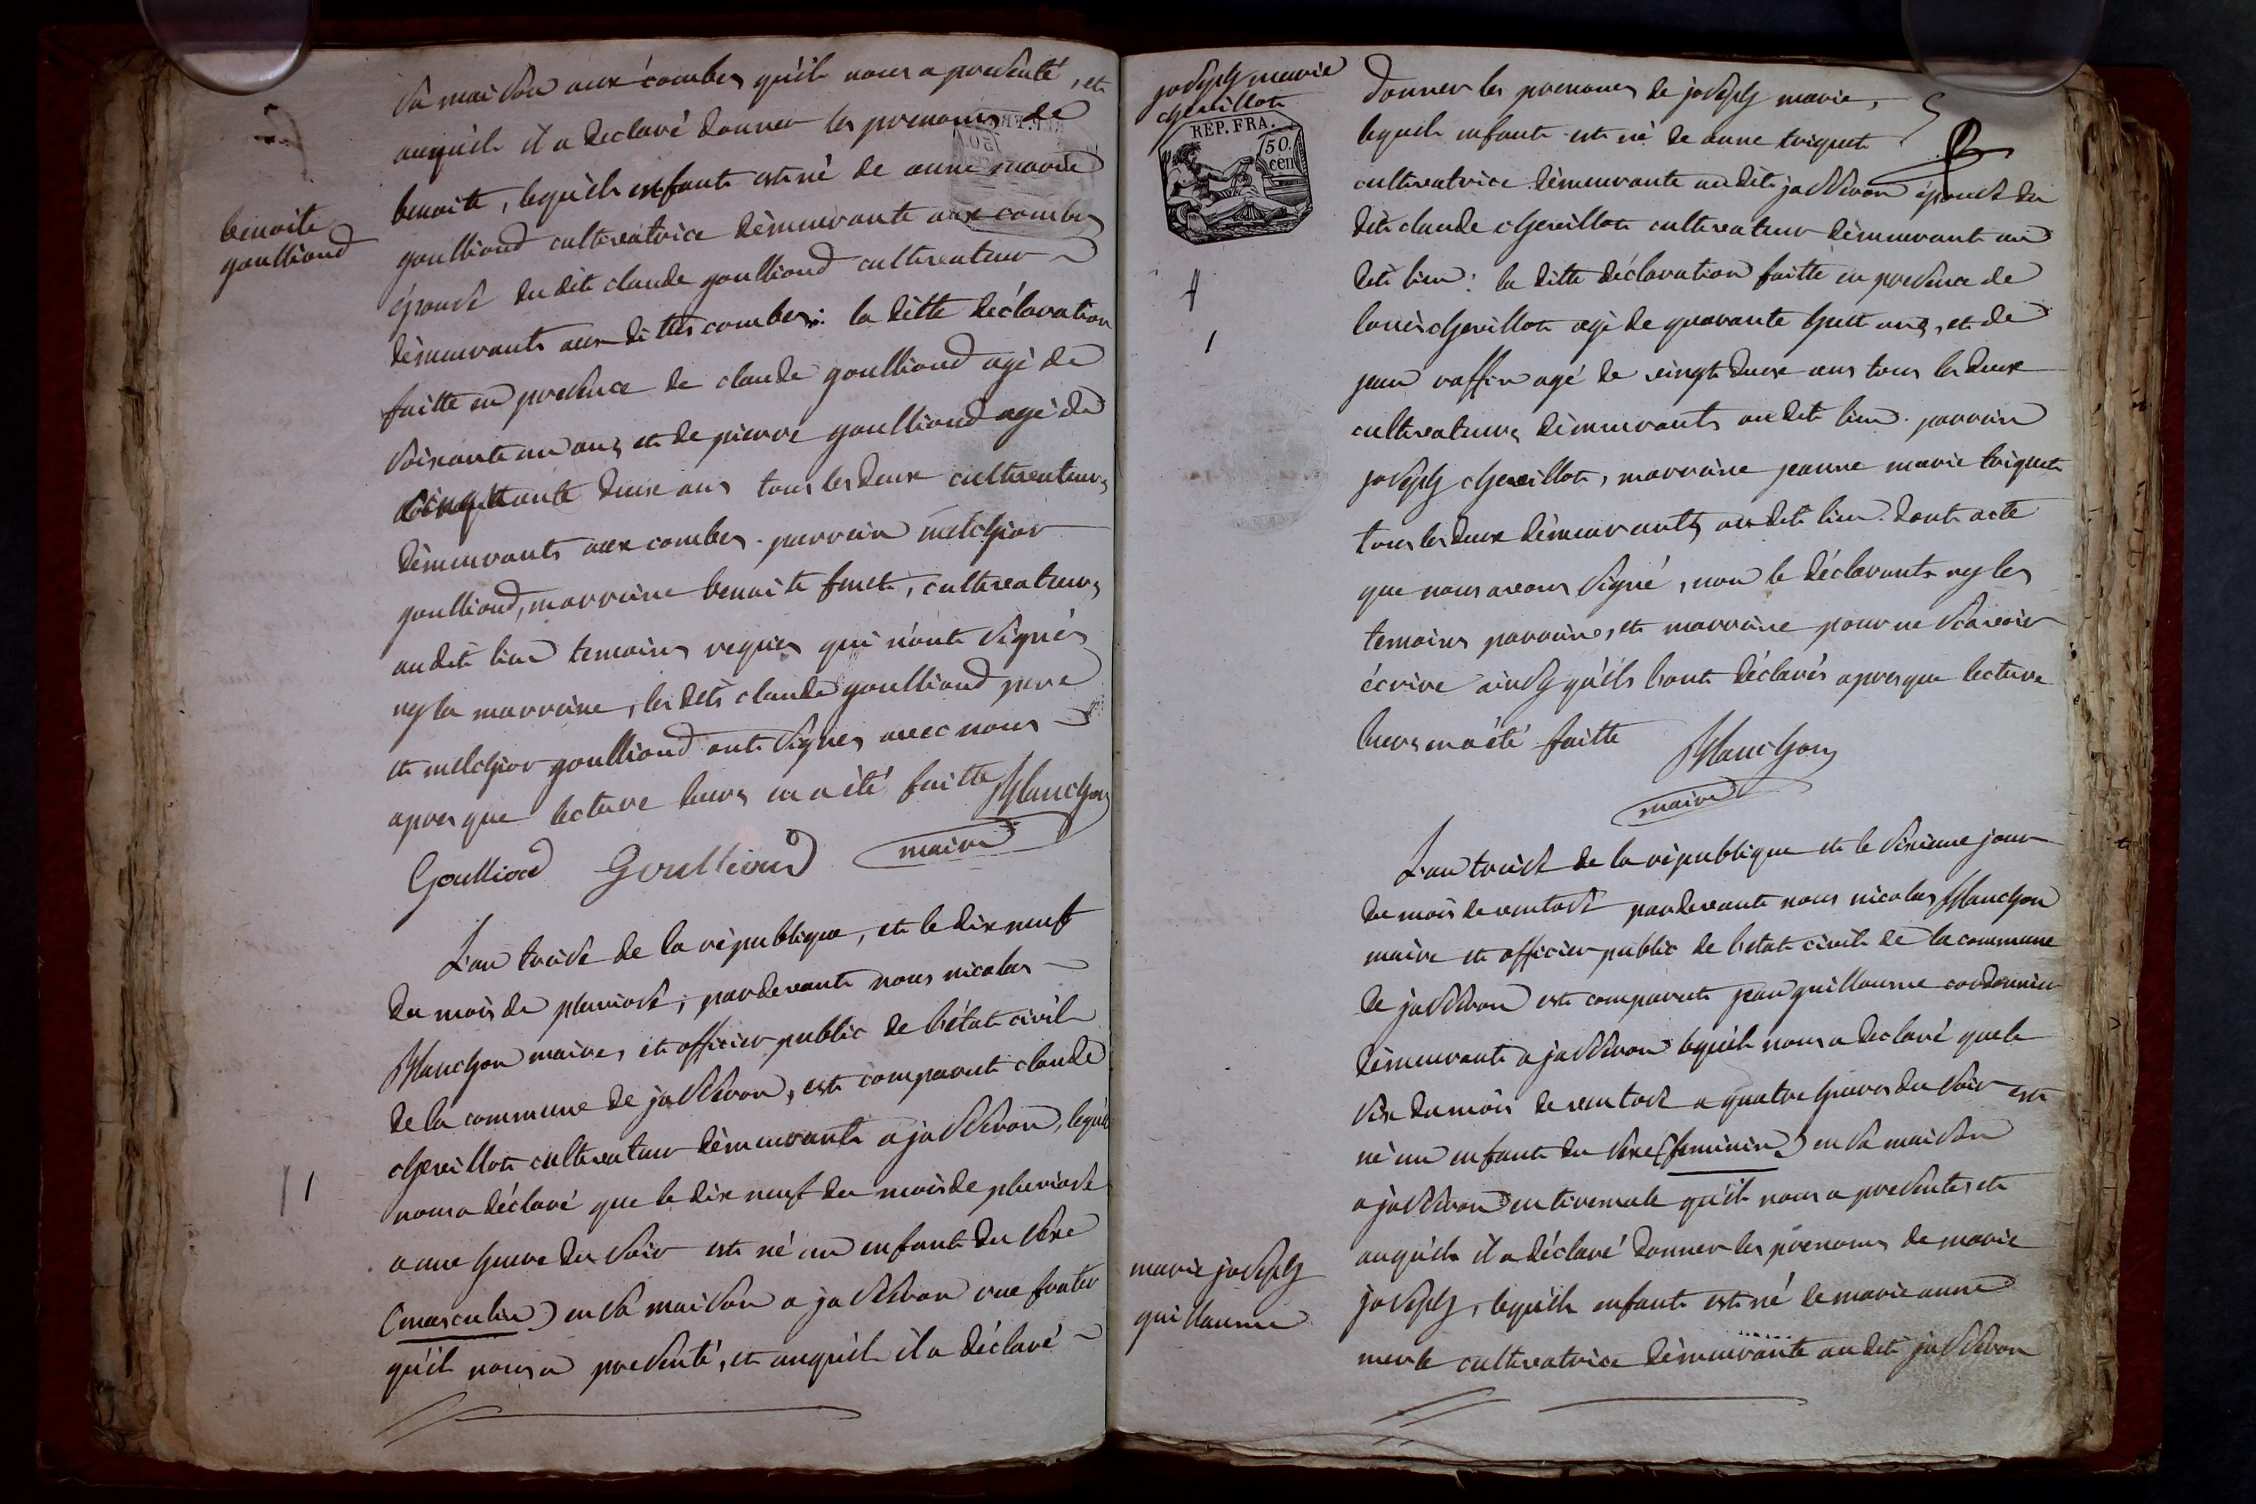 sa maison aux combes qu'il nous a presenté, et
auquil il a declaré donner les prenoms de
benoite, lequils enfant est né de anne marie
goulliond cultivatrice démeurante aux combes
épouse du dit claude goulliond cultivateur
démeurants aux dittes combes: la ditte déclaration
faitte en presence de claude goulliond agé de
soixante un ans et de pierre goulliond agé de
cinquante deux ans tous les deux cultivateurs
démeurants aux combes. parrein melchior
goulliond, marreine benoite finet, cultivateurs
au dit lieu temoins requis qui n'ont signés
ny la marreine, les dits claude goulliond pere
et melchior goulliond ont signés avec nous
apres que lecture leurs en a été faitte Planchon
Goulliond Goulliond maire
benoite
goulliond
L'an treise de la république, et le dix neuf
du mois de pluviose, pardevant nous nicolas
Planchon maire, et officier public de l'état civil
de la commune de jasseron, est comparut claude
chevillot cultivateur démeurant a jasseron, lequil
nous a déclaré que le dix neuf du mois de pluviose
a une heure du soir est né un enfant du sexe
(masculin) en sa maison a jasseron rue frater
qu'il nous a presenté, et auquil il a déclaré
joseph marie
chevillot
REP. FRA.
50.
cen
donner les prenoms de joseph marie,
lequil enfant est né de anne triquet
cultivatrice démeurante au dit jasseron épouse du
dit claude chevillot cultivateur démeurant au
dit lieu: la ditte déclaration faitte en presence de
louis chevillot agé de quarante huit ans, et de
jean raffin agé de vingt deux ans tous les deux
cultivateurs démeurants au dit lieu. parrein
joseph chevillot, marreine jeanne marie triquet
tous les deux démeurants au dit lieu. dont acte
que nous avons signé, non le déclarant ny les
temoins parrein, et marreine pour ne scavoir
écrire ainsy qu'ils l'ont déclarés apres que lecture
leurs en a été faitte Planchon
maire
L'an treise de la république et le sixieme jour
du mois de ventose pardevant nous nicolas Planchon
maire et officier public de l'etat civil de la commune
de jasseron est comparut jean guillaume cordonnier
démeurant a jasseron lequil nous a declaré que le
six du mois de ventose a quatre heures du soir est
né un enfant du sexe (feminin) en sa maison
a jasseron qu'il nous a presenté et
auquil il a déclaré donner les prenoms de marie
joseph, lequil enfant est né de marie anne
merle cultivatrice démeurante au dit jasseron
marie joseph
guillaume